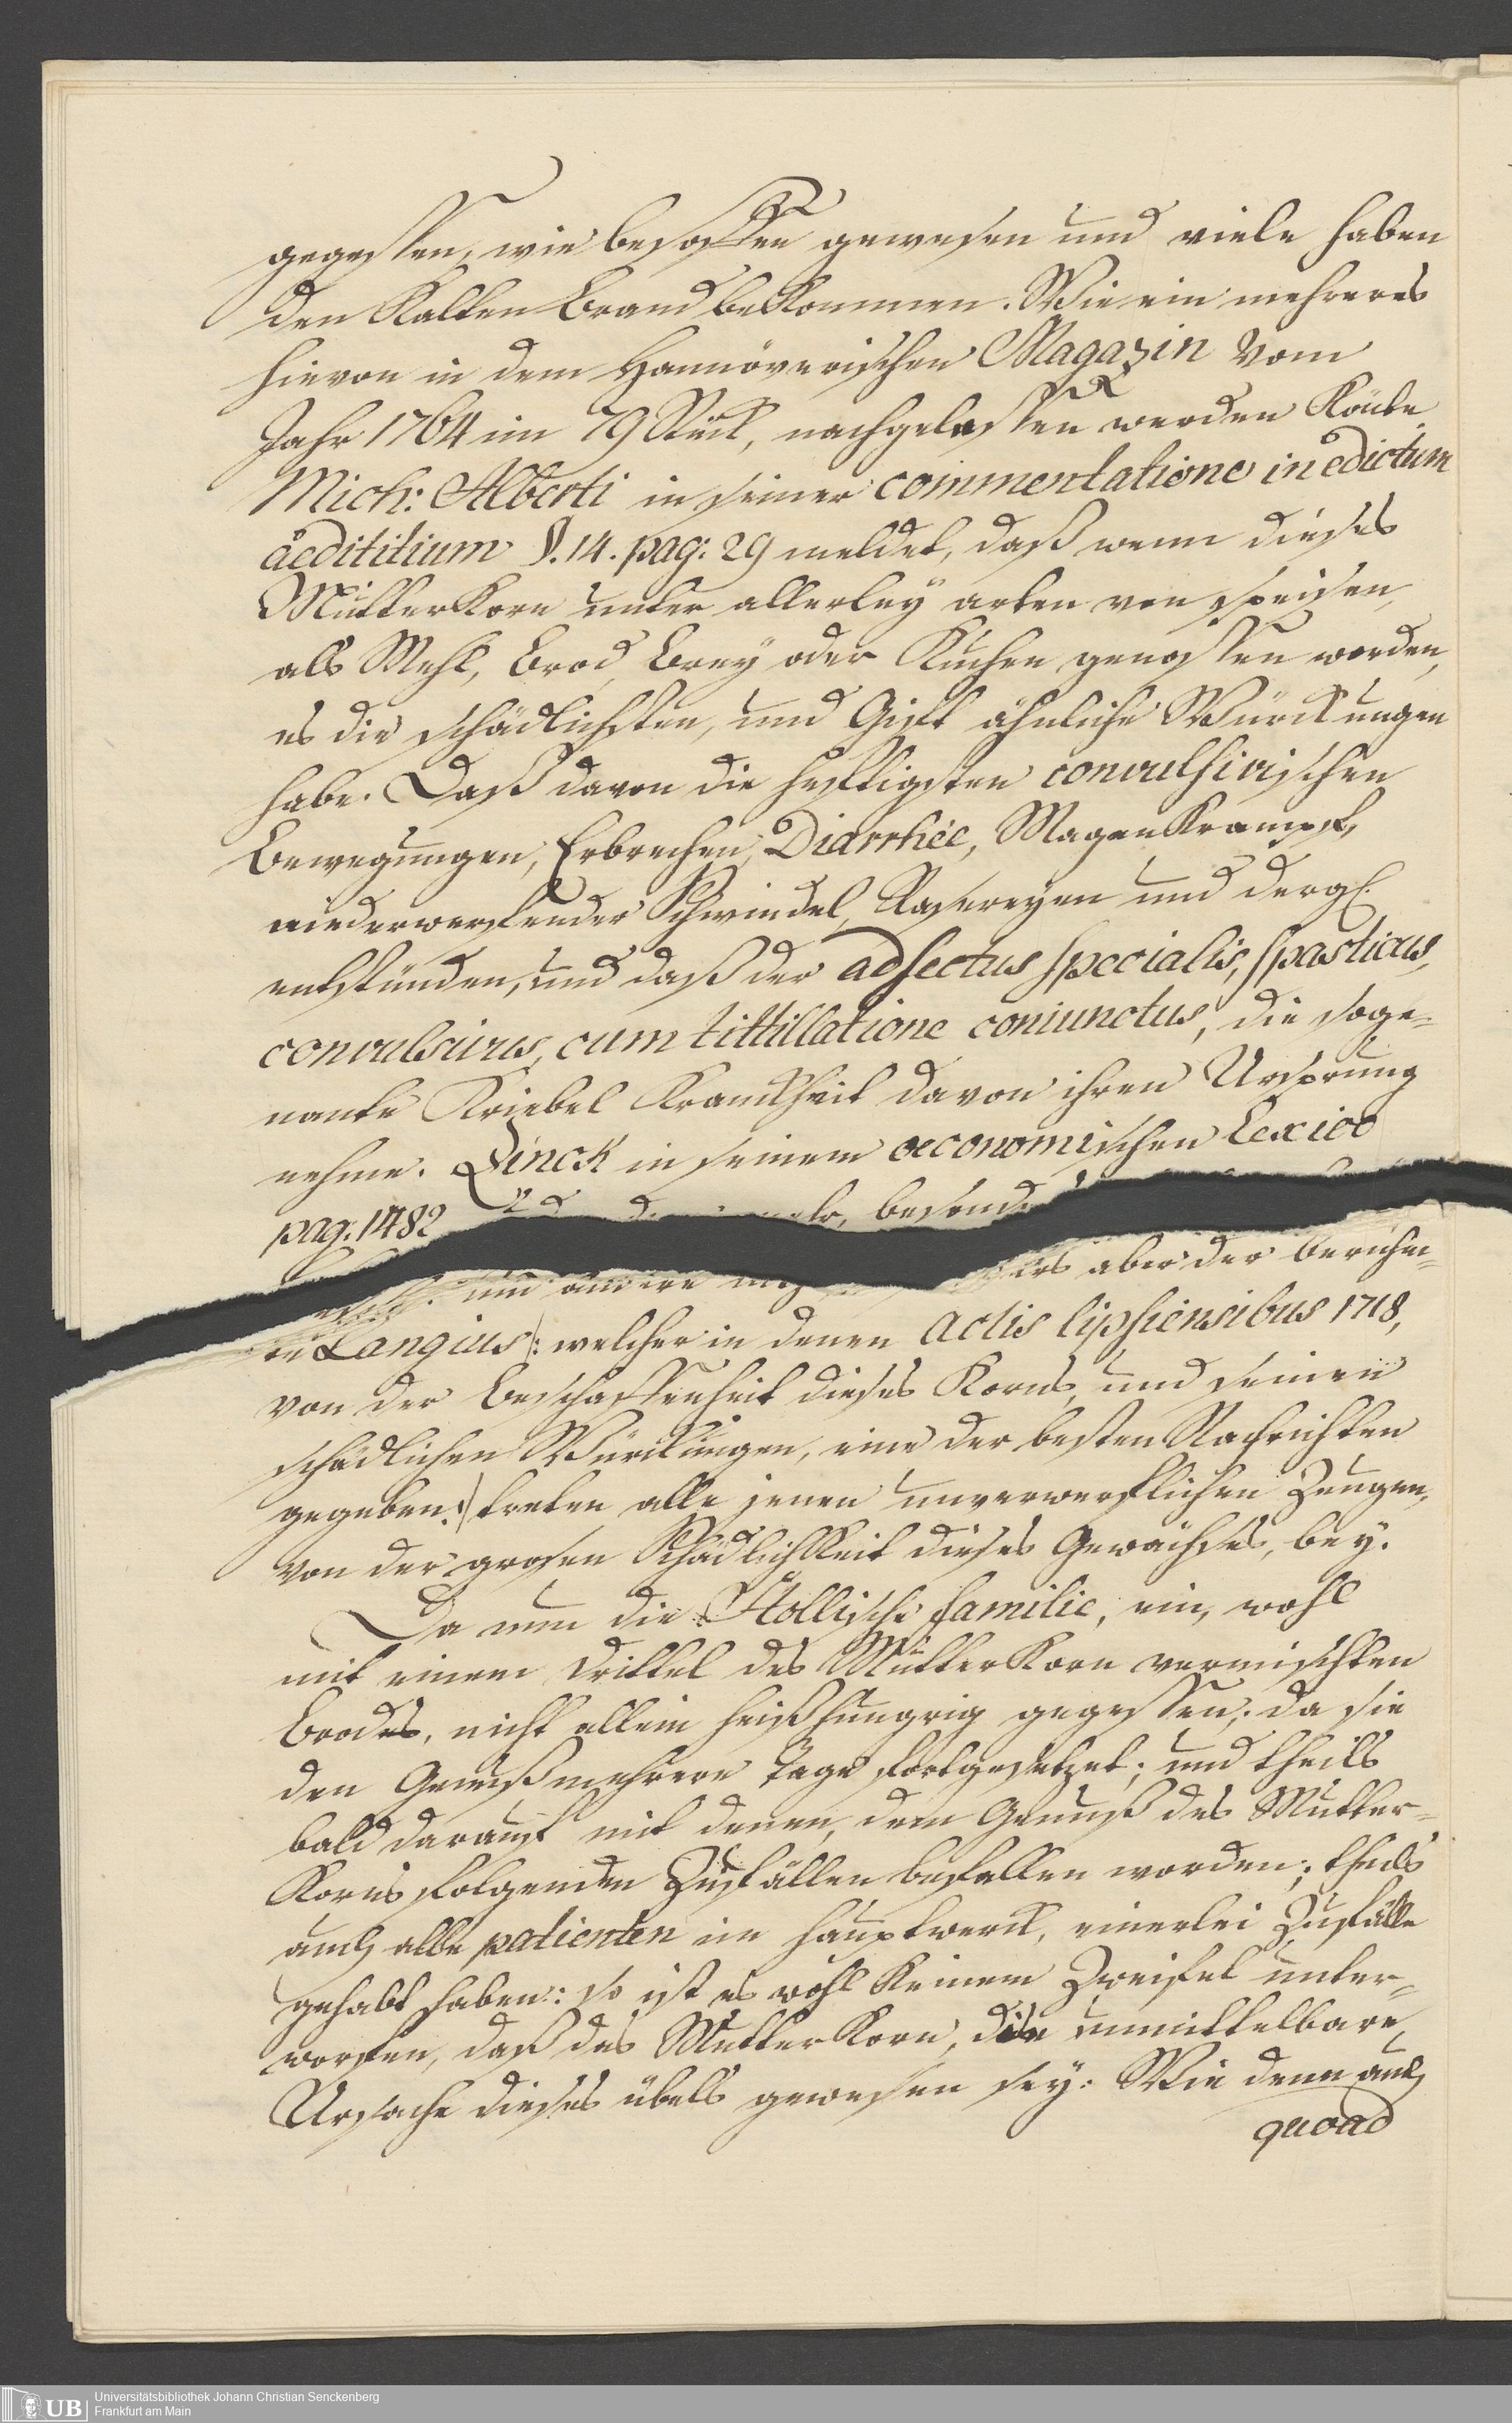 gegessen, wie besoffen gewesen und viele haben
den Kalten Brand beKommen. Wie ein mehreres
hievon in dem Hannöverischen Magazin vom
Jahr 1764 im 79 Stück, nachgelesen werden Könte
Mich: Alberti in seiner commentatione in edictum
aedititium §. 14. pag: 29 meldet, daß wenn dieses
MutterKorn unter allerley arten von speisen,
als Mehl, Brod, Brey oder Kuchen genossen worden,
es die schädlichsten, und Gift ähnliche Würckungen
habe. Daß davon die hefftigsten convulsivischen
Bewegungen, Erbrechen, Diarrhée, MagenKrampf,
niederwerfender Schwindel, Rasereyen und dergl.
entstünden, und daß der adfectus specialis, spasticus,
convulsivus, cum tittillatione coniunctus, die soge-
nante Kriebel Kranckheit davon ihren Ursprung
nehme. Zinck in seinem oeconomischen Lexico
pag: 1482 besonders
und andere aber der berühm-
te Langius |: welcher in denen Actis lipsiensibus 1718,
von der Beschaffenheit dieses Korns, und seinen
schädlichen Würckungen, eine der besten Nachrichten
gegeben :| tretten alle jenen unverwerflichen Zeugen,
von der grosen SchädlichKeit dieses Gewächses, bey.
Da nun die Stollische familie, ein, wohl
mit einem drittel des MutterKorn vermischten
Brodes, nicht allein heißhungrig gegessen; da sie
den Genuß mehrere Tage fortgesetzet; und theils
bald darauf mit denen, dem Genuß des Mutter-
Korns folgenden Zufällen befallen worden; theils
auch alle patienten im Hauptwerck, einerlei Zufälle
gehabt haben: so ist es wohl Keinem Zweifel unter-
worfen, daß das MutterKorn, die unmittelbare
Ursache dieses übels gewesen sey: Wie denn auch
quoad
Universitätsbibliothek Johann Christian Senckenberg
Frankfurt am Main
UB